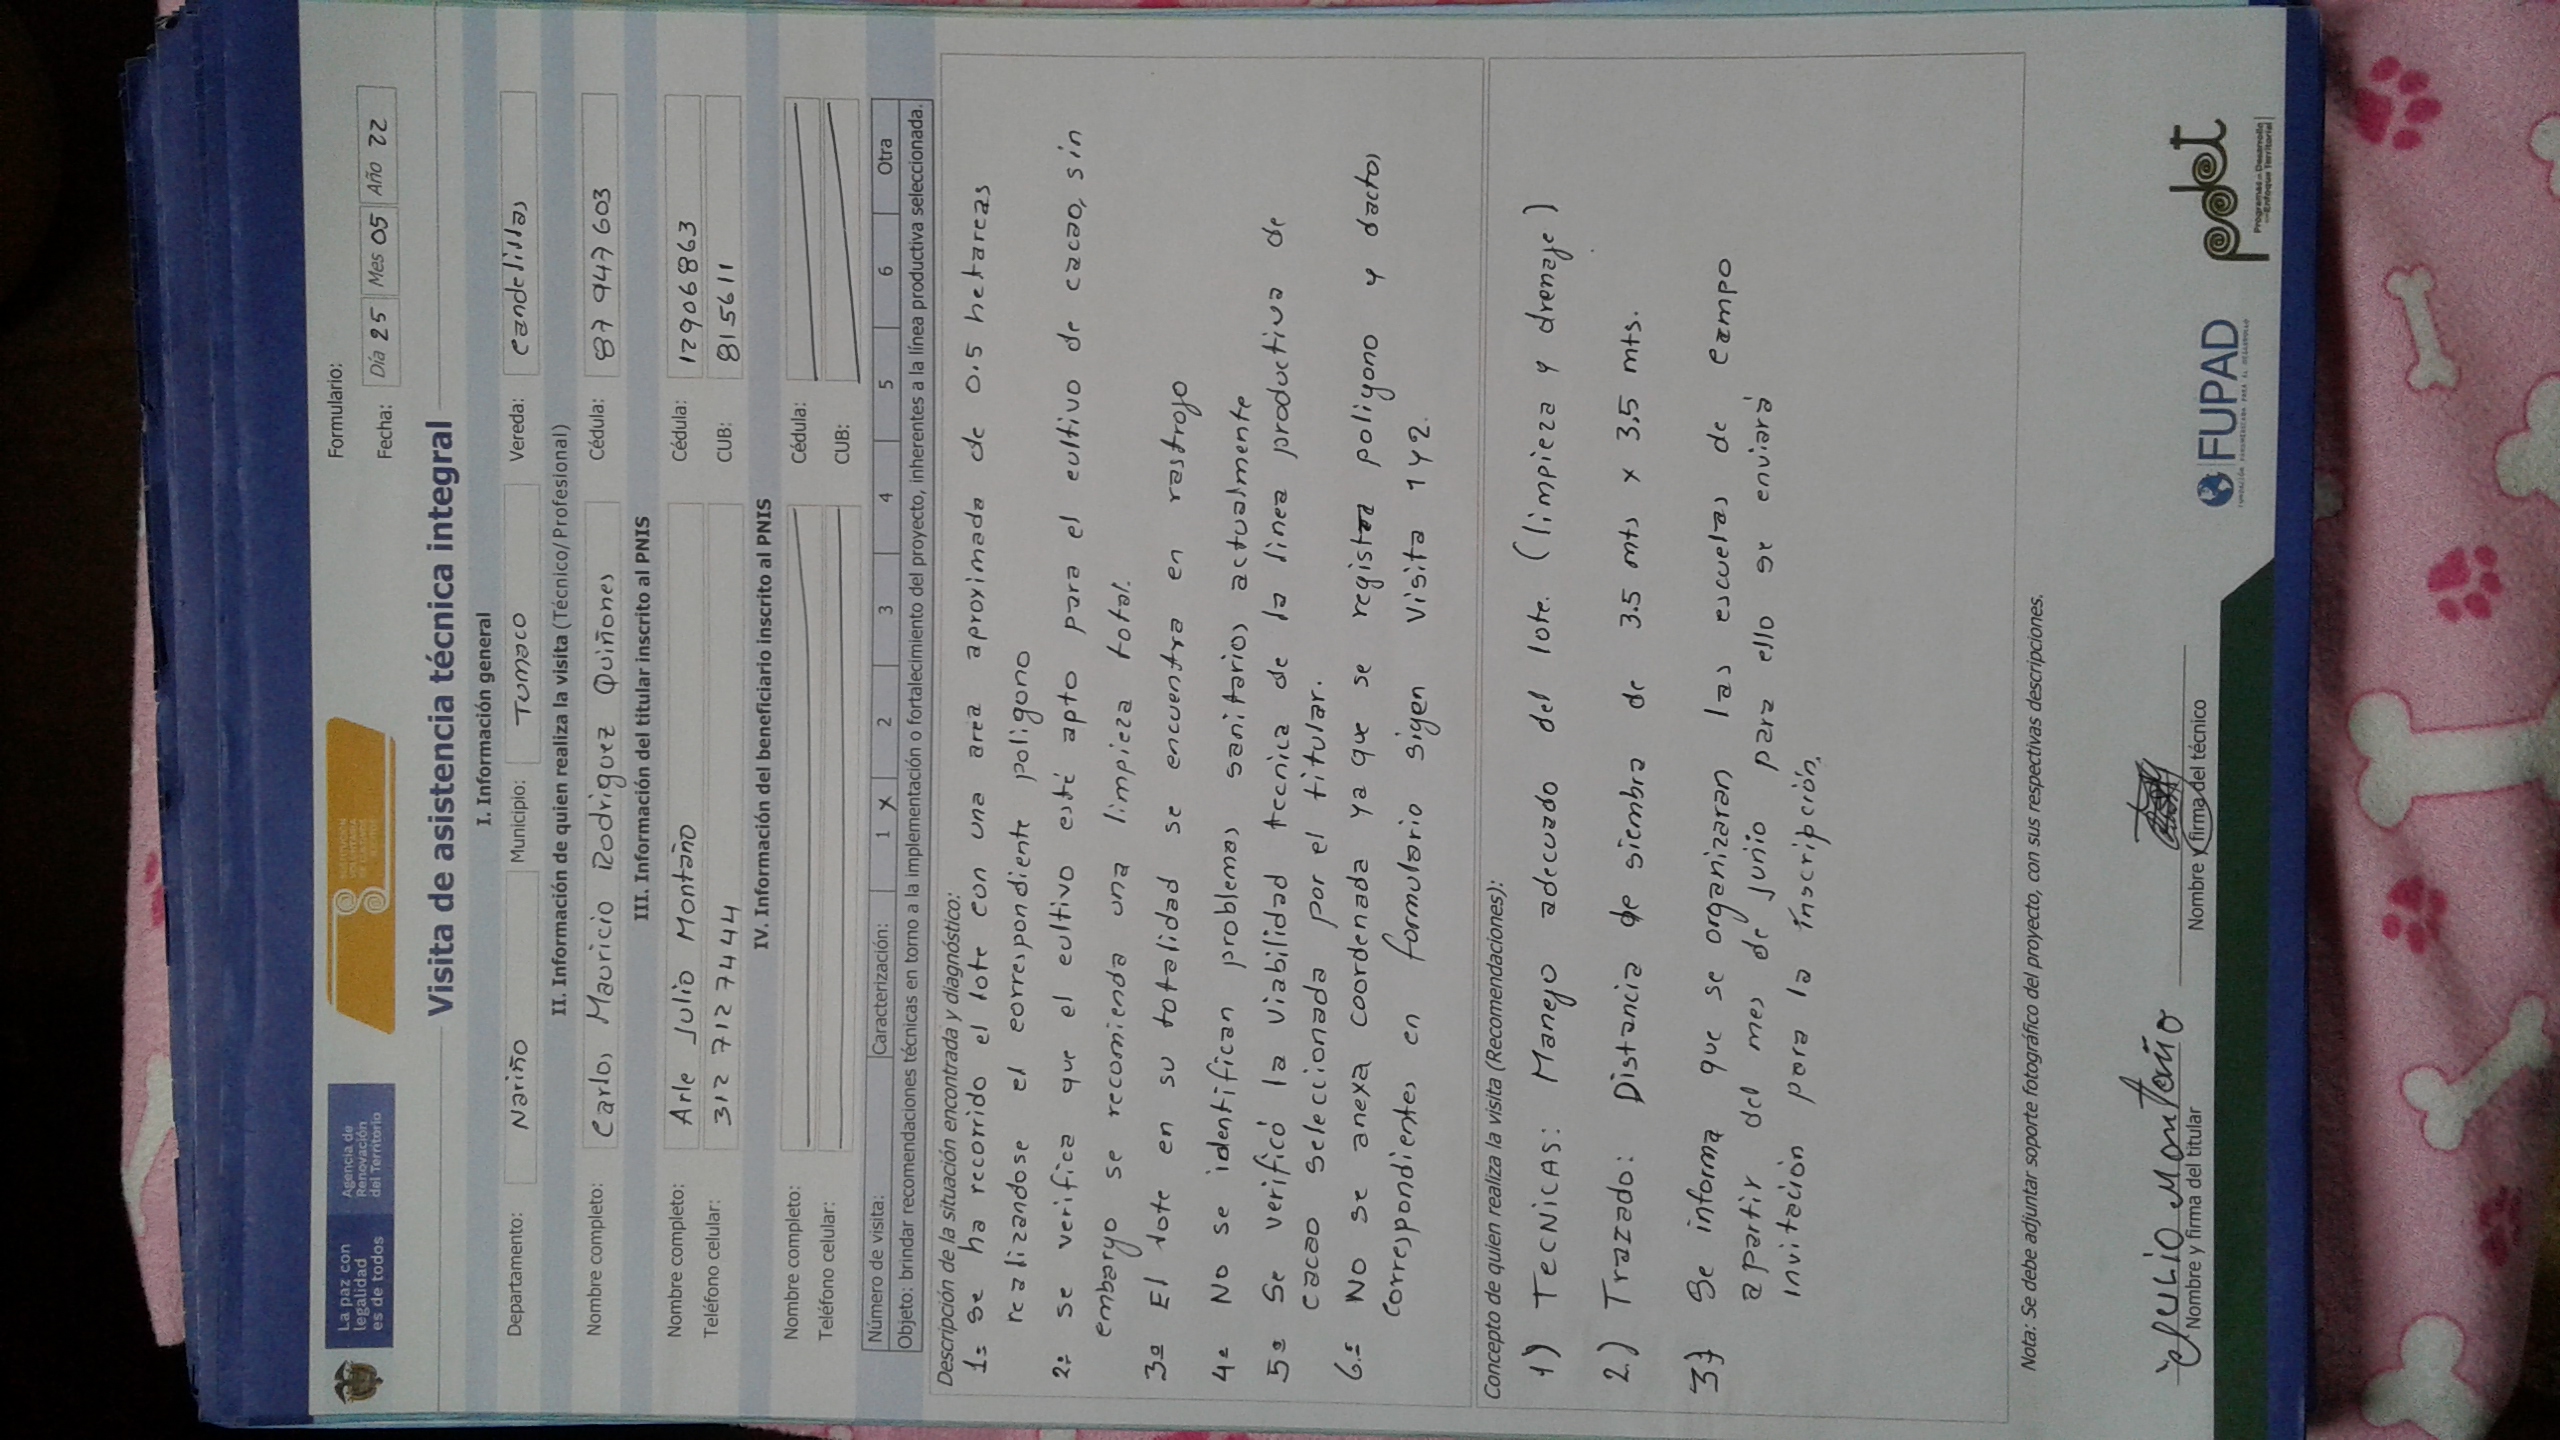 La paz con
legalidad
es de todos
Agencia de
Renovación
del Territorio
Formulario:
Fecha: Día 25 Mes 05 Año 22
Visita de asistencia técnica integral
I. Información general
Departamento: Nariño Municipio: Tumaco Vereda: Candelillas
II. Información de quien realiza la visita (Técnico/Profesional)
Nombre completo: Carlos Mauricio Rodriguez Quiñones Cédula: 87 947 603
III. Información del titular inscrito al PNIS
Nombre completo: Arle Julio Montaño Cédula: 12906863
Teléfono celular: 312 712 7444 CUB: 815611
IV. Información del beneficiario inscrito al PNIS
Nombre completo: Cédula:
Teléfono celular: CUB:
Número de visita: Caracterización: 1 X 2 3 4 5 6 Otra
Objeto: brindar recomendaciones técnicas en torno a la implementación o fortalecimiento del proyecto, inherentes a la línea productiva seleccionada.
Descripción de la situación encontrada y diagnóstico:
1= se ha recorrido el lote con una area aproximada de 0.5 hetareas
realizandose el correspondiente poligono
2= se verifica que el cultivo esté apto para el cultivo de cacao, sin
embargo se recomienda una limpieza total.
3= El lote en su totalidad se encuentra en rastrojo
4= No se identifican problemas sanitarios actualmente
5= Se verificó la viabilidad tecnica de la linea productiva de
cacao seleccionada por el titular.
6.= No se anexa coordenada ya que se registra poligono y dactos
correspondientes en formulario sigen visita 1 y 2.
Concepto de quien realiza la visita (Recomendaciones):
1) TecNicAS: Manejo adecuado del lote. (limpieza y drenaje)
2) Trazado: Distancia de siembra de 3.5 mts x 3.5 mts.
3) Se informa que se organizaran las escuelas de campo
apartir del mes de junio para ello se enviará
invitación para la inscripción.
Nota: Se debe adjuntar soporte fotográfico del proyecto, con sus respectivas descripciones.
Julio Montaño
Nombre y firma del titular
Nombre y firma del técnico
FUPAD
pdet
Programas de Desarrollo
con Enfoque Territorial